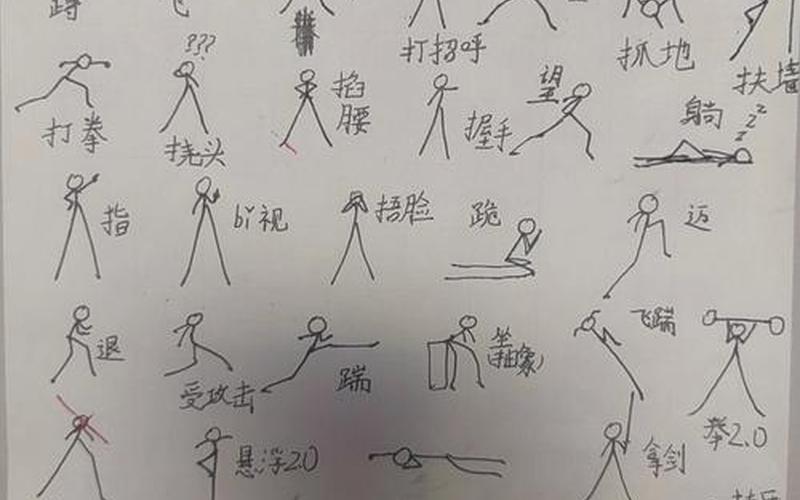 蹲 飞
打招呼
抓地
扶墙
???
打拳
挠头
掐腰
握手
望
躺
zzz
指
bi视
捂脸
跪
迈
退
受攻击
踹
坐
(抽象)
飞踹
举2.0
悬浮2.0
拿剑